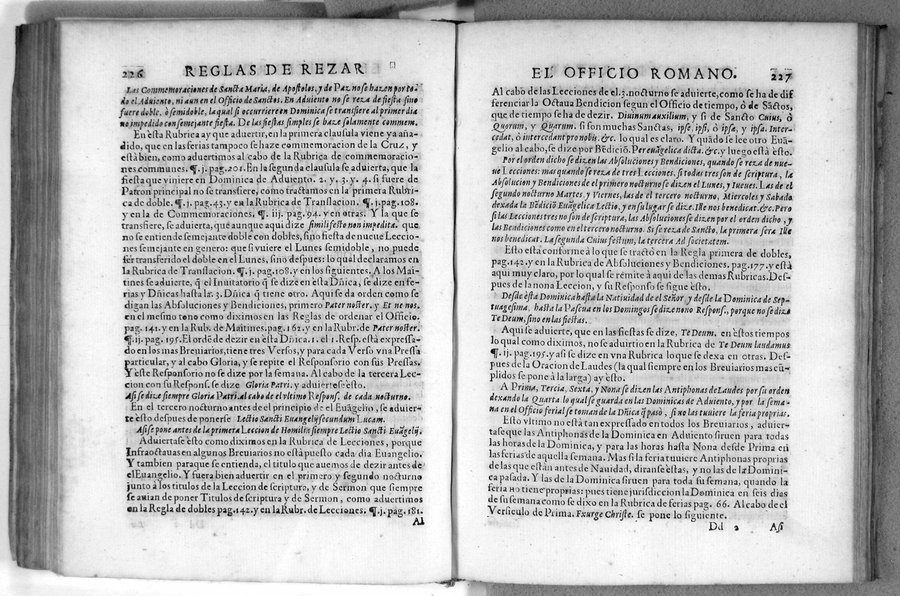 226 REGLAS DE REZAR
Las Commemoraciones de Sancta Maria, de Apostolos, y de Paz no se hazen por to
do el Aduiento, ni aun en el Officio de Sanctos. En Aduiento no se reza de fiesta sino
fuere doble, ò semidoble, la qual si occurriere en Dominica se transfiere al primer dia
no impedido con semejante fiesta. De las fiestas simples se haze solamente commem.
En èsta Rubrica ay que aduertir, en la primera clausula viene ya aña-
dido, que en las ferias tampoco se haze commemoracion de la Cruz, y
està bien, como aduertimos al cabo de la Rubrica de commemoracio-
nes communes. ¶.j. pag. 201. En la segunda clausula se aduierta, que la
fiesta que viniere en Dominica de Aduiento. 2. y. 3. y. 4. si fuere de
Patron principal no se transfiere, como tractamos en la primera Rubri-
ca de doble. ¶.j. pag. 43. y en la Rubrica de Translacion. ¶.j. pag. 108.
y en la de Commemoraciones. ¶. iij. pag. 94. y en otras. Y la que se
transfiere, se aduierta, que aunque aqui dize simili festo non impedita. que
no se entien de semejante doble con dobles, sino fiesta de nueue Leccio-
nes semejante en genero: que si vuiere el Lunes semidoble, no puede
ser transferido el doble en el Lunes, sino despues: lo qual declaramos en
la Rubrica de Translacion. ¶.j. pag. 108. y en los siguientes. A los Mai-
tines se aduierte, q̃ el Inuitatorio q̃ se dize en esta Dñica, se dize en fe-
rias y Dñicas hasta la. 3. Dñica q̃ tiene otro. Aqui se da orden como se
digan las Absoluciones y Bendiciones, primero Pater noster. y Et ne nos.
en el mesmo tono como diximos en las Reglas de ordenar el Officio.
pag. 141. y en la Rub. de Maitines. pag. 162. y en la Rubr. de Pater noster.
¶.ij. pag. 195. El ordẽ de dezir en èsta Dñica. 1. el 1. Resp. està expressa-
do en los mas Breuiarios, tiene tres Versos, y para cada Verso vna Pressa
particular, y al cabo Gloria, y se repite el Responsorio con sus Pressas.
Y èste Responsorio no se dize por la semana. Al cabo de la tercera Lec-
cion con su Respons. se dize Gloria Patri. y aduierte èsto.
Asi se dize siempre Gloria Patri. al cabo de el vltimo Respons. de cada nocturno.
En el tercero nocturno antes de el principio de el Euãgelio, se aduier-
te èsto despues de ponerse Lectio Sancti Euangelij secundum Lucam.
Asi se pone antes de la primera Leccion de Homilia siempre Lectio Sancti Euãgelij.
Aduiertase èsto como diximos en la Rubrica de Lecciones, porque
Infraoctauas en algunos Breuiarios no està puesto cada dia Euangelio.
Y tambien para que se entienda, el titulo que auemos de dezir antes de
el Euangelio. Y fuera bien aduertir en el primero y segundo nocturno
junto à los titulos de la Leccion de scriptura, y de Sermon que siempre
se auian de poner Titulos de scriptura y de Sermon, como aduertimos
en la Regla de dobles pag. 142. y en la Rubr. de Lecciones. ¶.j. pag. 181.
Al
EL OFFICIO ROMANO. 227
Al cabo de las Lecciones de el. 3. nocturno se aduierte, como se ha de dif
ferenciar la Octaua Bendicion segun el Officio de tiempo, ò de Sãctos,
que de tiempo se ha de dezir. Diuinum auxilium, y si de Sancto Cuius, ò
Quorum, y Quarum. si son muchas Sanctas, ipse, ipsi, ò ipsæ, y ipsa. Inter-
cedat, ò intercedant pro nobis. &c. lo qual es claro. Y quãdo se lee otro Euã-
gelio al cabo, se dize por Bẽdiciõ. Per euãgelica dicta. &c. y luego està èsto.
Por el orden dicho se dizen las Absoluciones y Bendiciones, quando se reza de nue-
ue Lecciones: mas quando se reza de tres Lecciones, si todas tres son de scriptura, la
Absolucion y Bendiciones de el primero nocturno se dizen el Lunes, y Iueues. Las de el
segundo nocturno Martes, y Viernes, las de el tercero nocturno, Miercoles y Sabado
dexada la Bẽdiciõ Euãgelica Lectio, y en su lugar se dize. Ille nos benedicat. &c. Pero
si las Lecciones tres no son de scriptura, las Absoluciones se dizen por el orden dicho, y
las Bendiciones como en el tercero nocturno. Si se reza de Sancto, la primera serà Ille
nos benedicat. La segunda Cuius festum, la tercera Ad societatem.
Esto està conforme à lo que se tractò en la Regla primera de dobles,
pag. 142. y en la Rubrica de Absoluciones y Bendiciones. pag. 177. y està
aqui muy claro, por lo qual se remite à aqui de las demas Rubricas. Des-
pues de la nona Leccion, y su Responso se sigue èsto.
Desde èsta Dominica hasta la Natiuidad de el Señor y desde la Dominica de Sep-
tuagesima, hasta la Pascua en los Domingos se dize nono Respons. porque no se dize
Te Deum, sino en las fiestas.
Aqui se aduierte, que en las fiestas se dize. Te Deum. en èstos tiempos
lo qual como diximos, no se aduirtio en la Rubrica de Te Deum laudamus
¶.ij. pag. 195. y asi se dize en vna Rubrica lo que se dexa en otras. Des-
pues de la Oracion de Laudes (la qual siempre en los Breuiarios mas cũ-
plidos se pone à la larga) ay èsto.
A Prima, Tercia, Sexta, y Nona se dizen las Antiphonas de Laudes por su orden
dexando la Quarta lo qual se guarda en las Dominicas de Aduiento, y por la sema-
na en el Officio ferial se toman de la Dñica q̃ pasò, si no las tuuiere la feria proprias.
Esto vltimo no està tan expressado en todos los Breuiarios, aduier-
tase que las Antiphonas de la Dominica en Aduiento siruen para todas
las horas de la Dominica, y para las horas hasta Nona desde Prima en
las ferias de aquella semana. Mas si la feria tuuiere Antiphonas proprias
de las que estàn antes de Nauidad, diranse èstas, y no las de la Domini-
ca pasada. Y las de la Dominica siruen para toda su semana, quando la
feria no tiene proprias: pues tiene jurisdiccion la Dominica en seis dias
de su semana como se dixo en la Rubrica de ferias pag. 66. Al cabo de el
Versiculo de Prima. Exurge Christe. se pone lo siguiente.
Dd 2 Asi